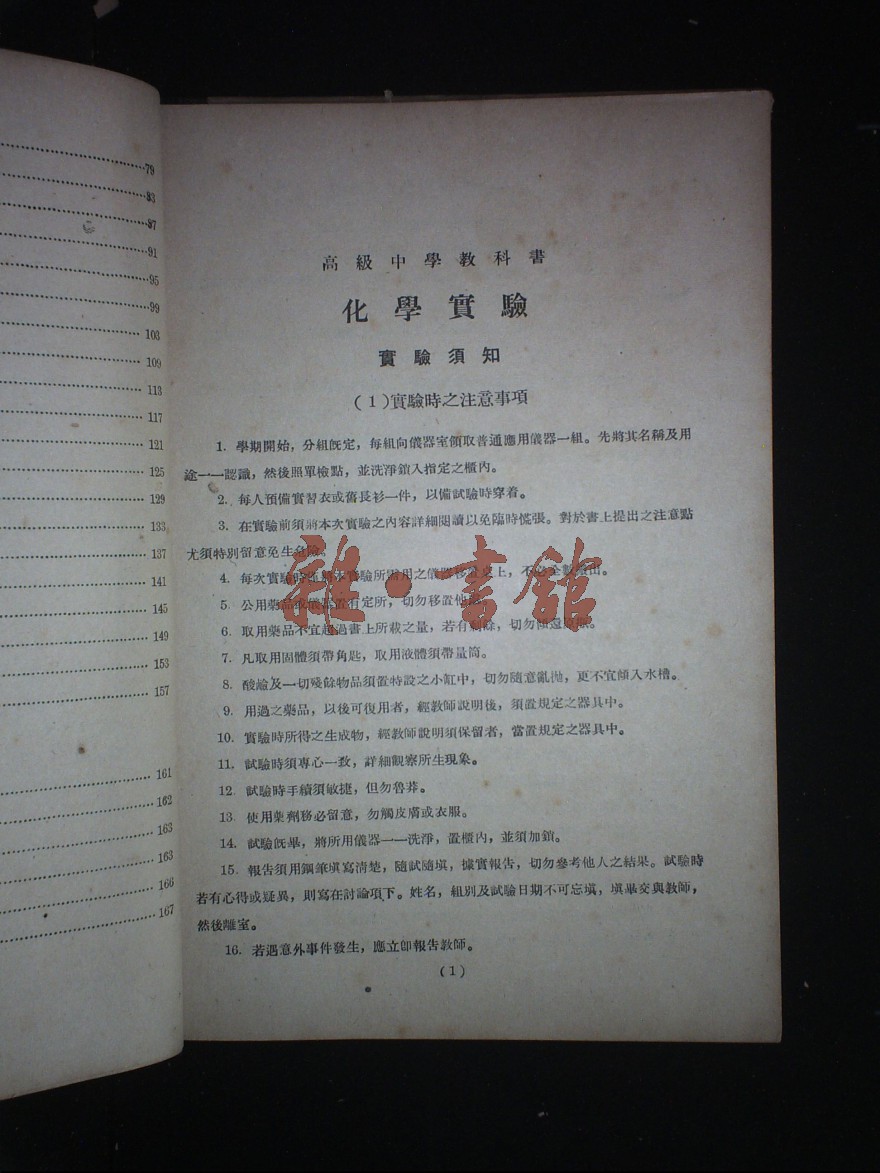 79
83
87
91
95
99
103
109
113
117
121
125
129
133
137
141
145
149
153
157
161
162
163
163
166
167
高級中學教科書
化學實驗
實驗須知
(1)實驗時之注意事項
1. 學期開始，分組旣定，每組向儀器室領取普通應用儀器一組。先將其名稱及用
途一一認識，然後照單檢點，並洗淨鎖入指定之櫃內。
2. 每人預備實習衣或舊長衫一件，以備試驗時穿着。
3. 在實驗前須將本次實驗之內容詳細閱讀以免臨時慌張。對於書上提出之注意點
尤須特別留意免生危險。
4. 每次實驗時僅將本實驗所需用之儀器移置桌上，不必全數取出。
5. 公用藥品或儀器置有定所，切勿移置他處。
6. 取用藥品不宜超過書上所載之量，若有剩餘，切勿傾還原瓶。
7. 凡取用固體須帶角匙，取用液體須帶量筒。
8. 酸鹼及一切殘餘物品須置特設之小缸中，切勿隨意亂拋，更不宜傾入水槽。
9. 用過之藥品，以後可復用者，經敎師說明後，須置規定之器具中。
10. 實驗時所得之生成物，經敎師說明須保留者，當置規定之器具中。
11. 試驗時須專心一致，詳細觀察所生現象。
12. 試驗時手續須敏捷，但勿魯莽。
13. 使用藥劑務必留意，勿觸皮膚或衣服。
14. 試驗旣畢，將所用儀器一一洗淨，置櫃內，並須加鎖。
15. 報告須用鋼筆塡寫清楚，隨試隨塡，據實報告，切勿參考他人之結果。試驗時
若有心得或疑異，則寫在討論項下。姓名，組別及試驗日期不可忘塡，塡畢交與敎師，
然後離室。
16. 若遇意外事件發生，應立卽報告敎師。
(1)
雜·書館